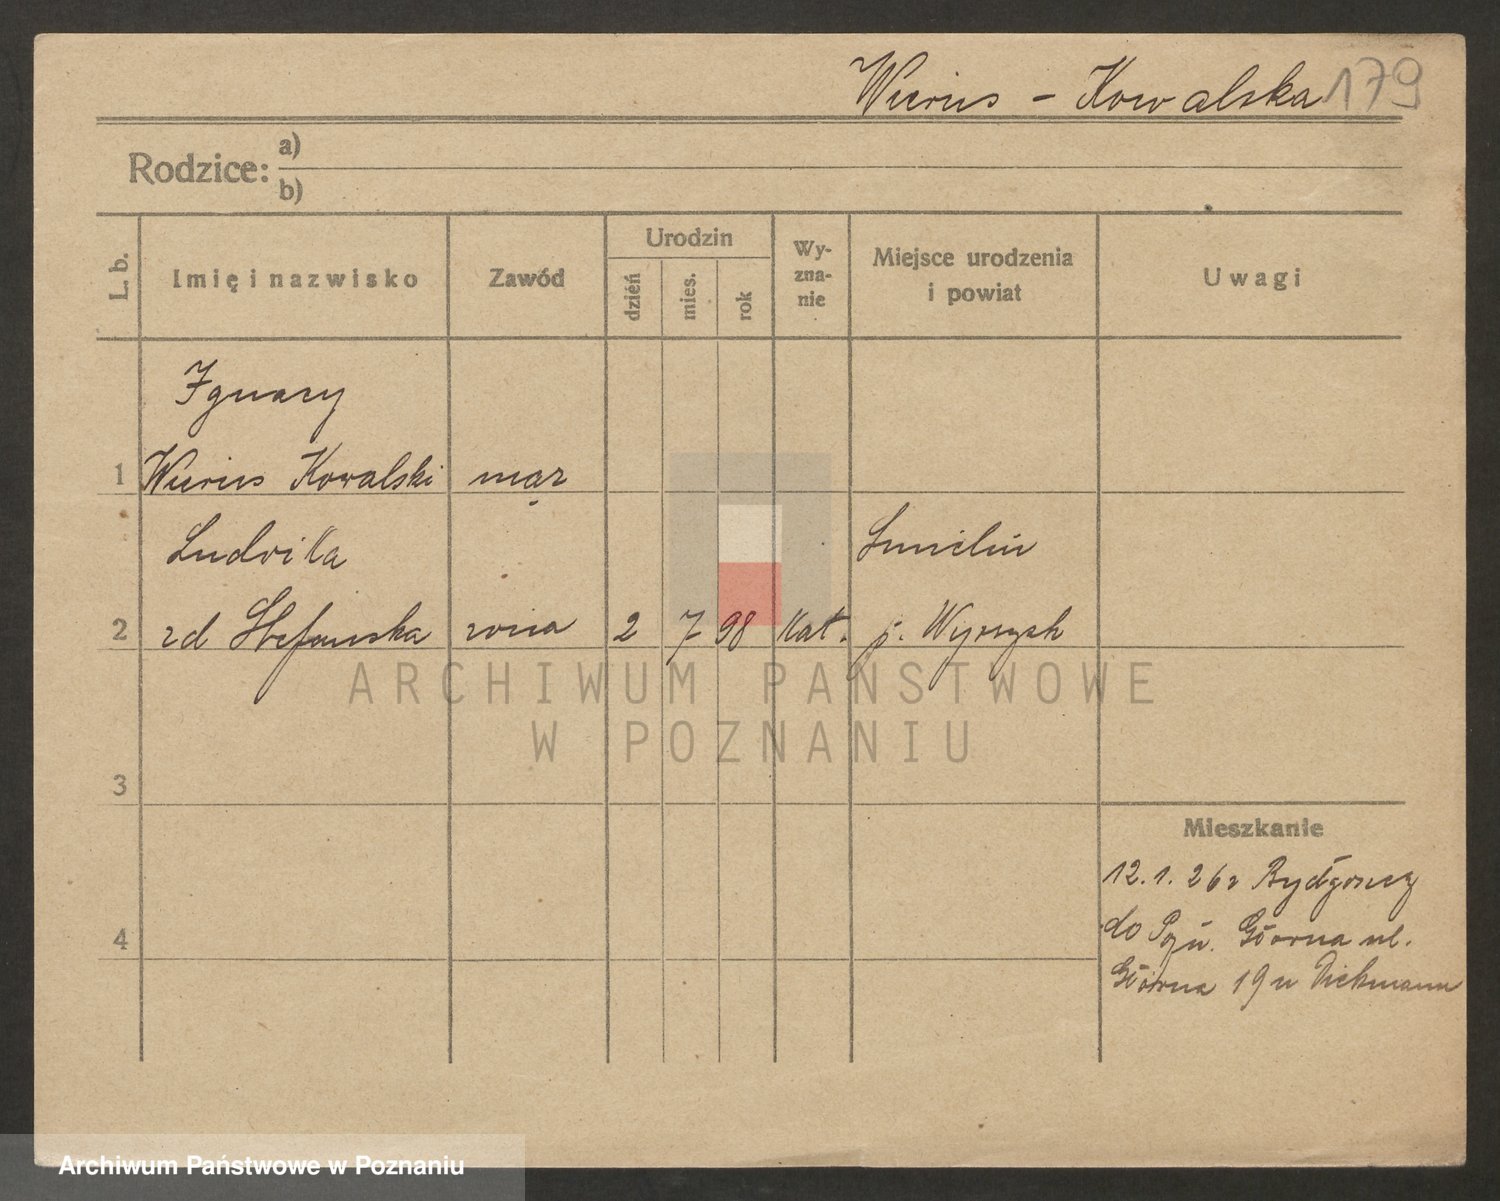 Wierus - Kowalska 179
Rodzice: a)
b)
L. b.
Imię i nazwisko
Zawód
Urodzin
dzień
mies.
rok
Wy-
zna-
nie
Miejsce urodzenia
i powiat
Uwagi
Ignacy
1 Wierus Kowalski mąz
Ludwika
2 zd Stefanska zona 2 7 98 Kat. p. Wyrzysk
3
4
Mieszkanie
12.1.26 z Bydgoszcz
do Pozn. Górna ul.
Górna 19 u Dickmann
ARCHIWUM PAŃSTWOWE
W POZNANIU
Archiwum Państwowe w Poznaniu